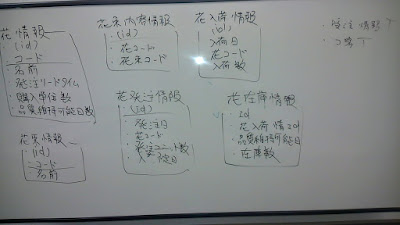 花情報
(id)
コード
・名前
・発注リードタイム
・購入単位数
・品質維持可能日数
花束情報
(id)
コード
名前
花束内容情報
(id)
・花コード
・花束コード
花発注情報
(id)
・発注日
・花コード
・発注ユニット数
定日
花入荷情報
(id)
入荷日
花コード
入荷数
花在庫情報
・id
・花入荷情報id
・品質維持可能日
・在庫数
・受注情報